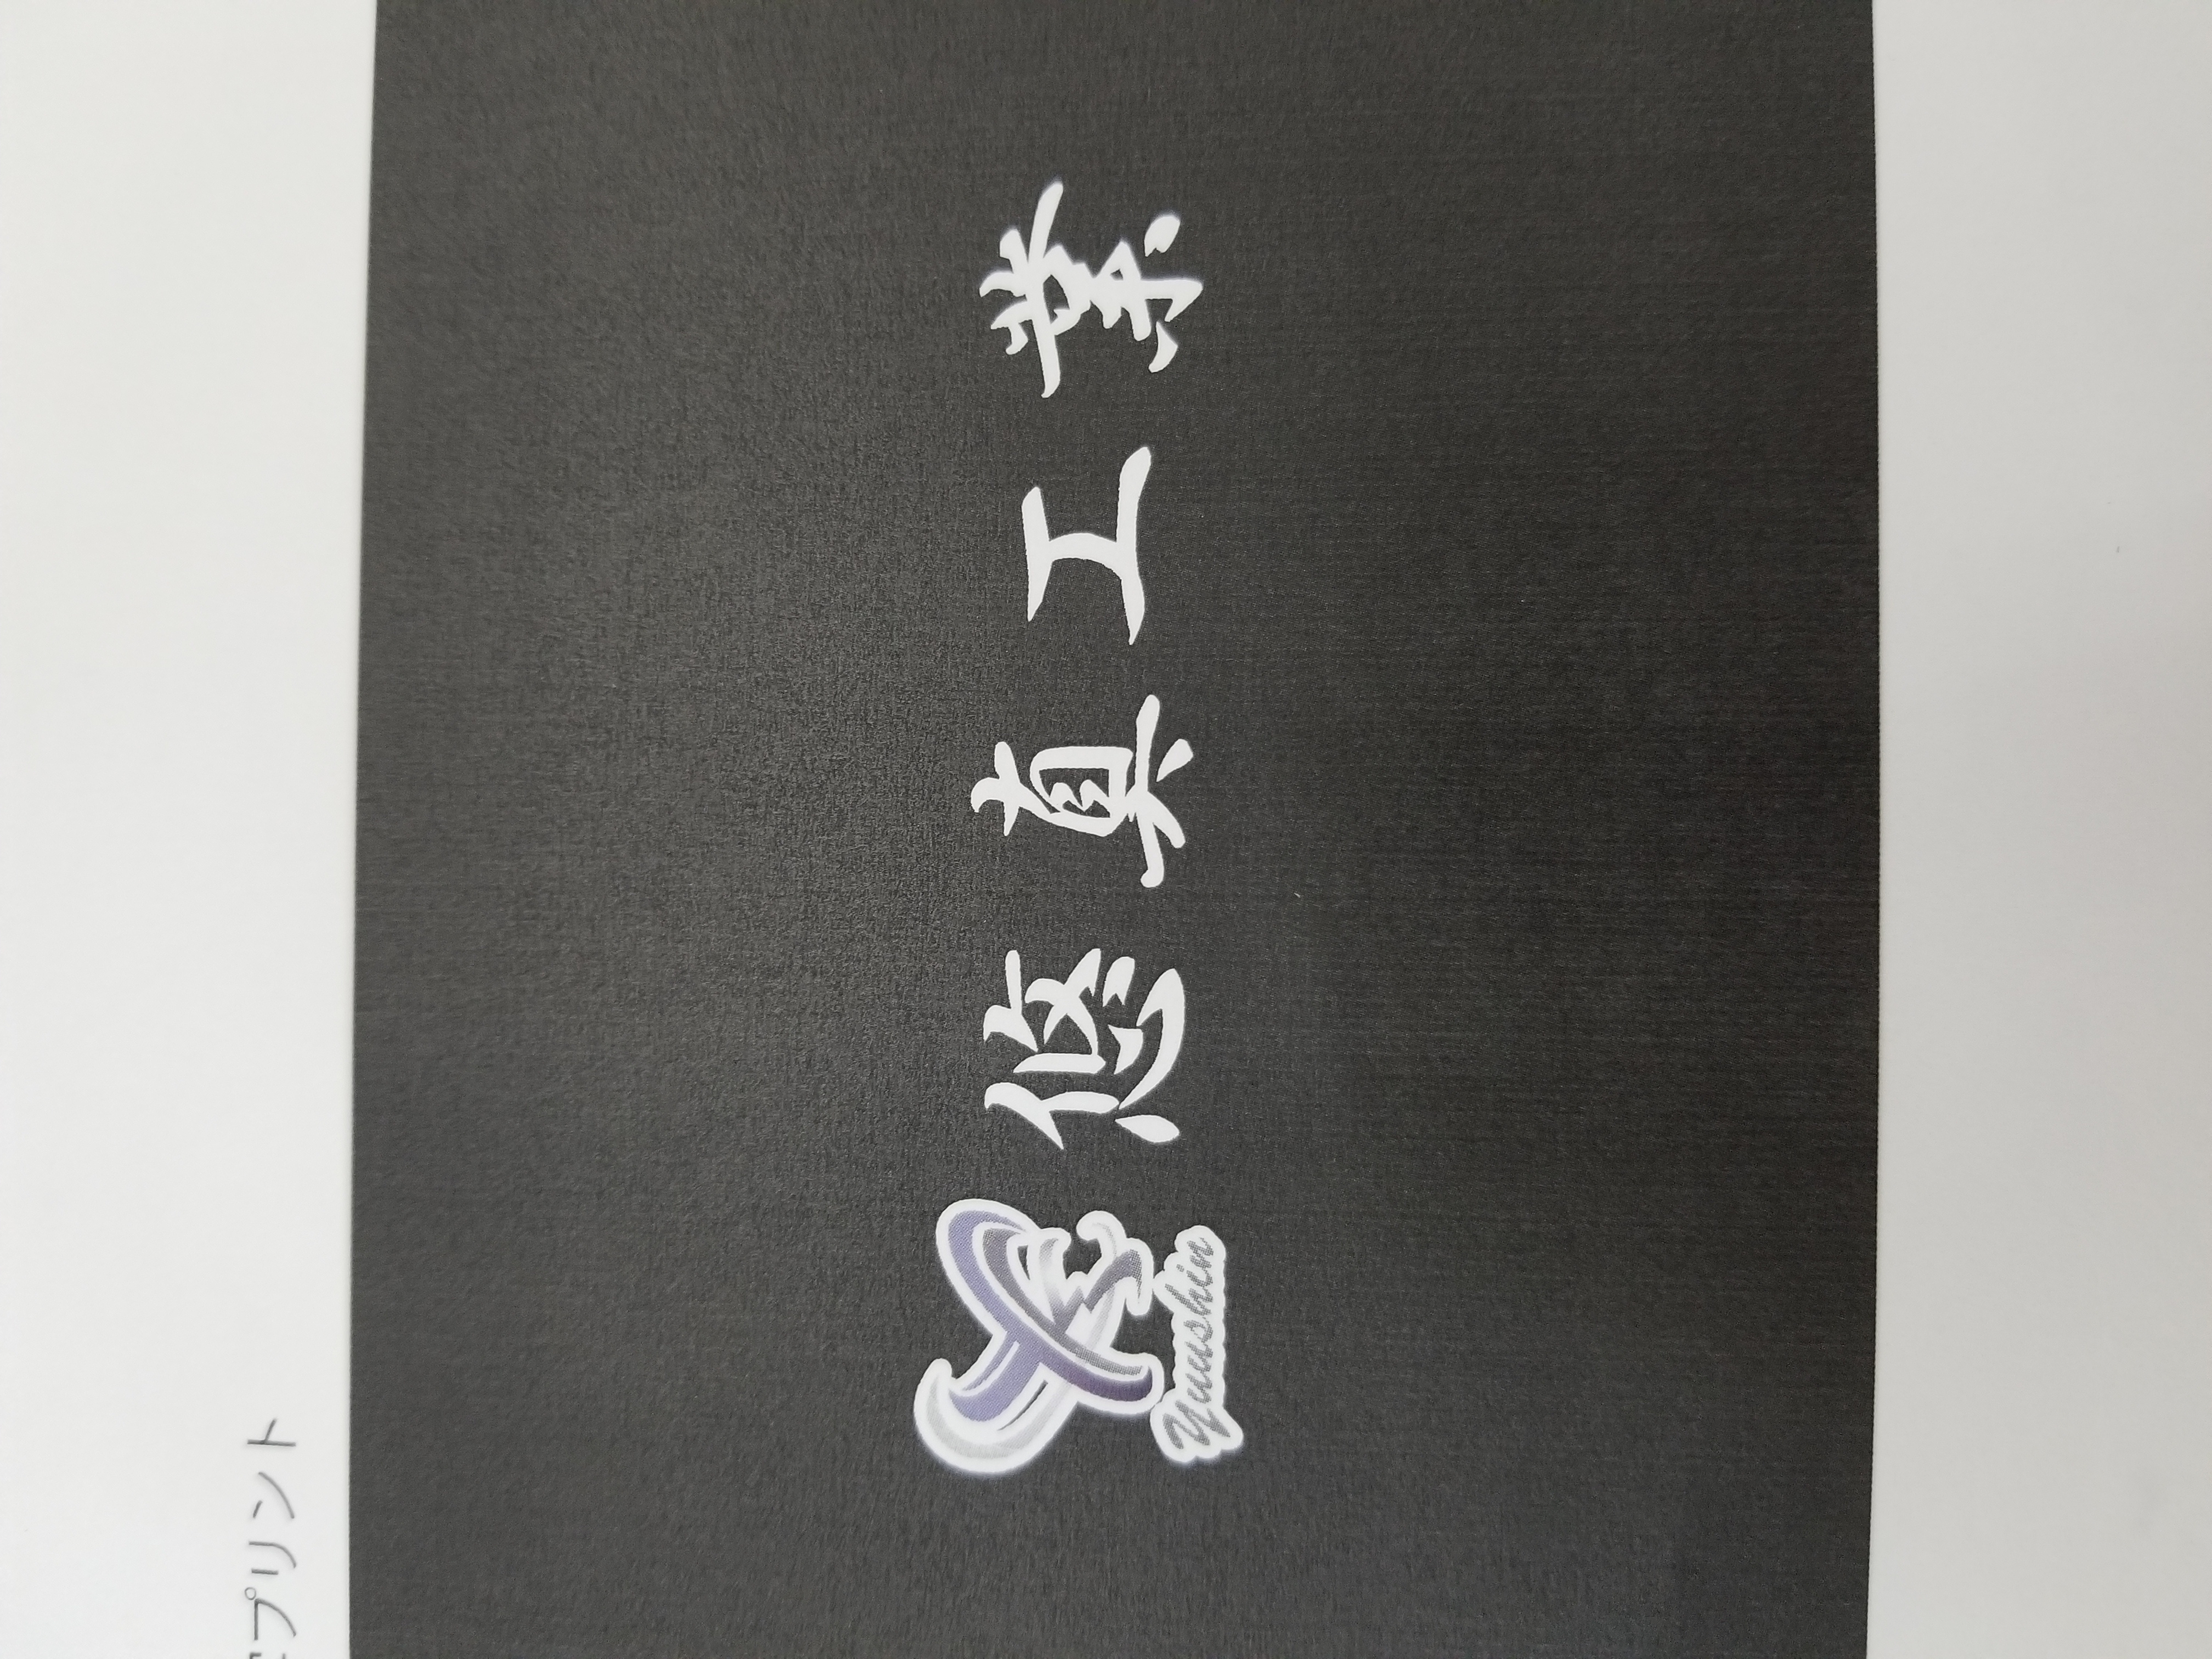 プリント
悠真工業
Yuushin